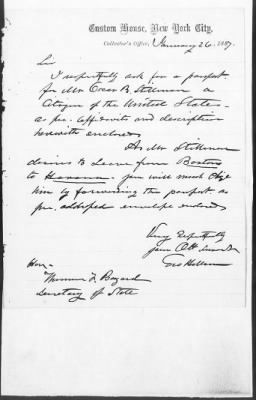 Custom House, New York City,
Collector's Office, January 26, 1887.
Sir
I respectfully ask for a passport
for Mr Oscar B. Stillman a
Citizen of the United States -
as per affidavits and description
herewith enclosed
As Mr Stillman
desires to Leave from Boston
to Havana you will much Oblige
him by forwarding the passport as
per addressed envelope enclosed
Very Respectfully
your Obt Servt
Hon -
Thomas F. Bayard
Secretary of State